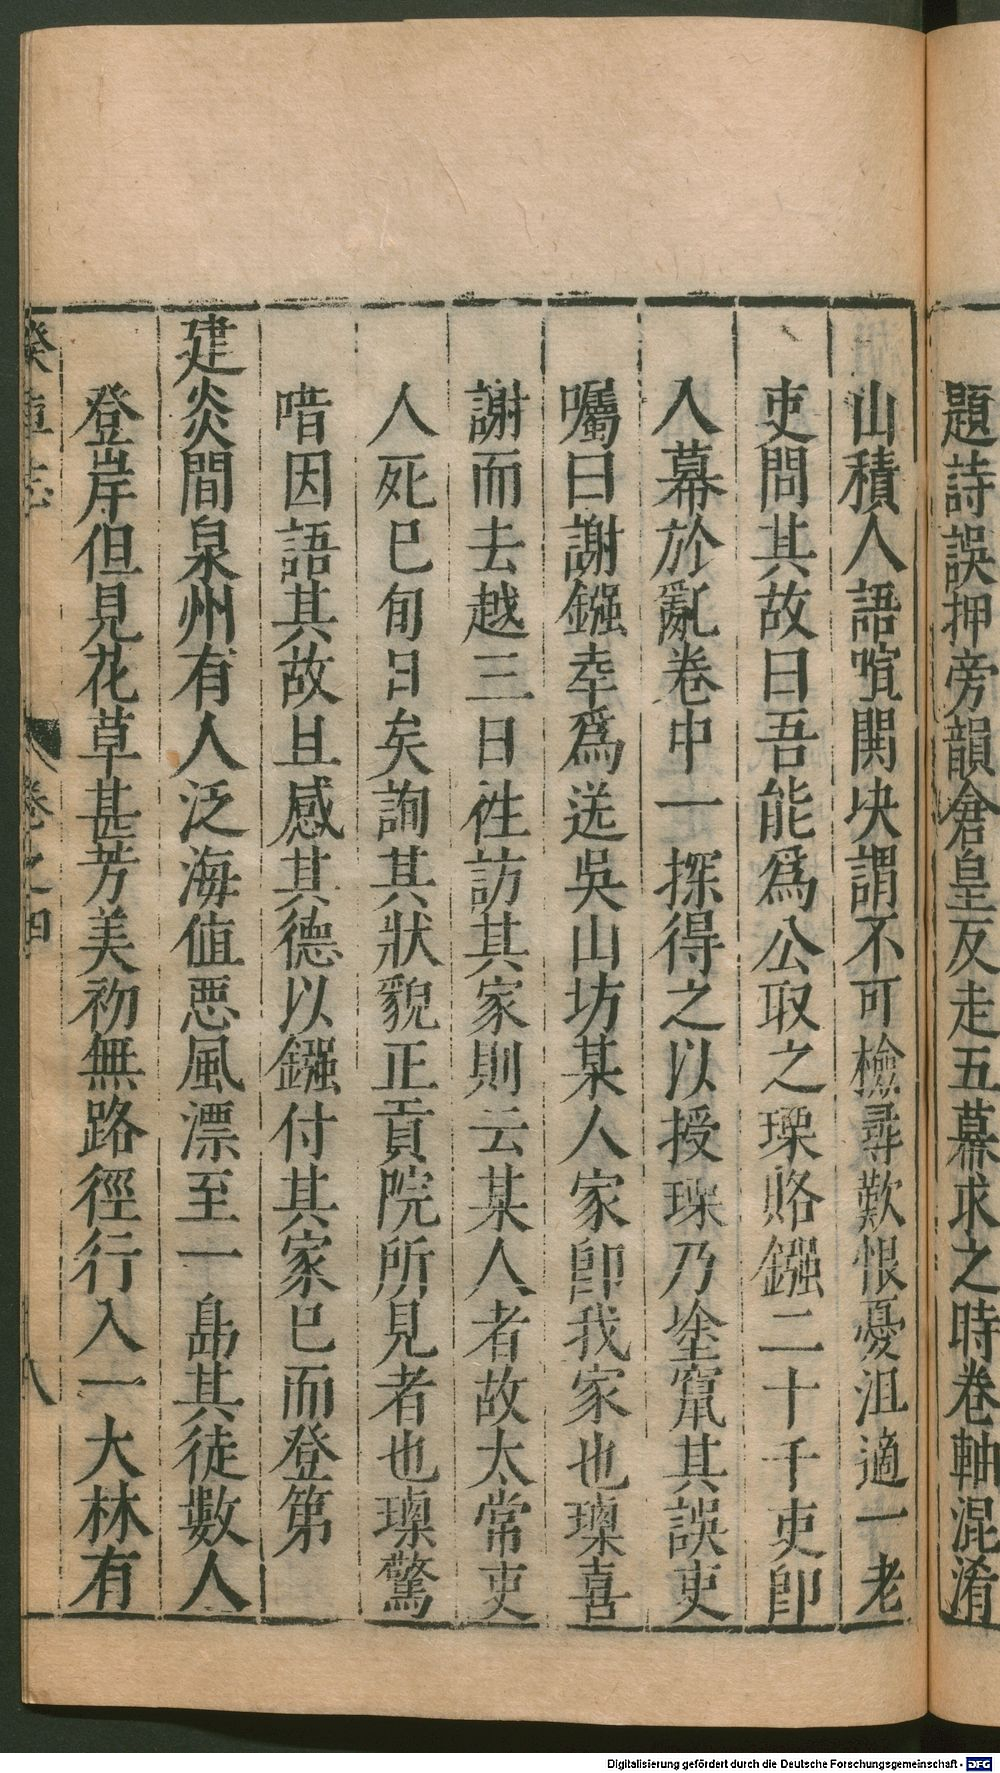 題詩誤押旁韻倉皇反走五幕求之時卷軸混淆
山積人語喧閧決謂不可檢尋歎恨憂沮適一老
吏問其故曰吾能爲公取之璪賂鏹二十千吏卽
入幕於亂卷中一探得之以授璪乃塗竄其誤吏
囑曰謝鏹幸爲送吳山坊某人家卽我家也璪喜
謝而去越三日徃訪其家則云某人者故太常吏
人死巳旬日矣詢其狀貌正貢院所見者也璪驚
唶因語其故且感其德以鏹付其家巳而登第
建炎間泉州有人泛海值惡風漂至一島其徒數人
登岸但見花草甚芳美初無路徑行入一大林有
癸車志
卷之四
八
Digitalisierung gefördert durch die Deutsche Forschungsgemeinschaft - DFG